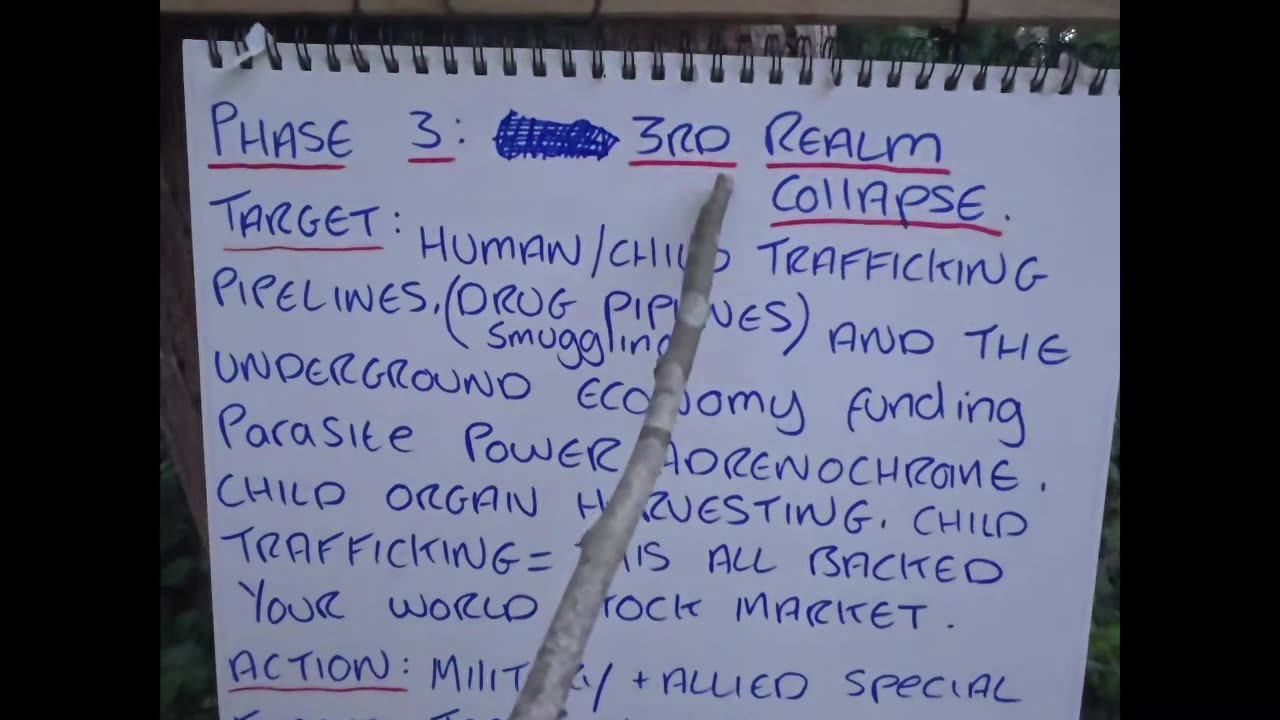 PHASE 3: 3RD REALM
COLLAPSE.
TARGET: HUMAN/CHILD TRAFFICKING
PIPELINES. (DRUG PIPELINES) AND THE
smuggling
UNDERGROUND ECONOMY funding
Parasite POWER ADRENOCHROME.
CHILD ORGAN HARVESTING. CHILD
TRAFFICKING = THIS ALL BACKED
YOUR WORLD STOCK MARKET.
ACTION: MILITARY + ALLIED SPECIAL